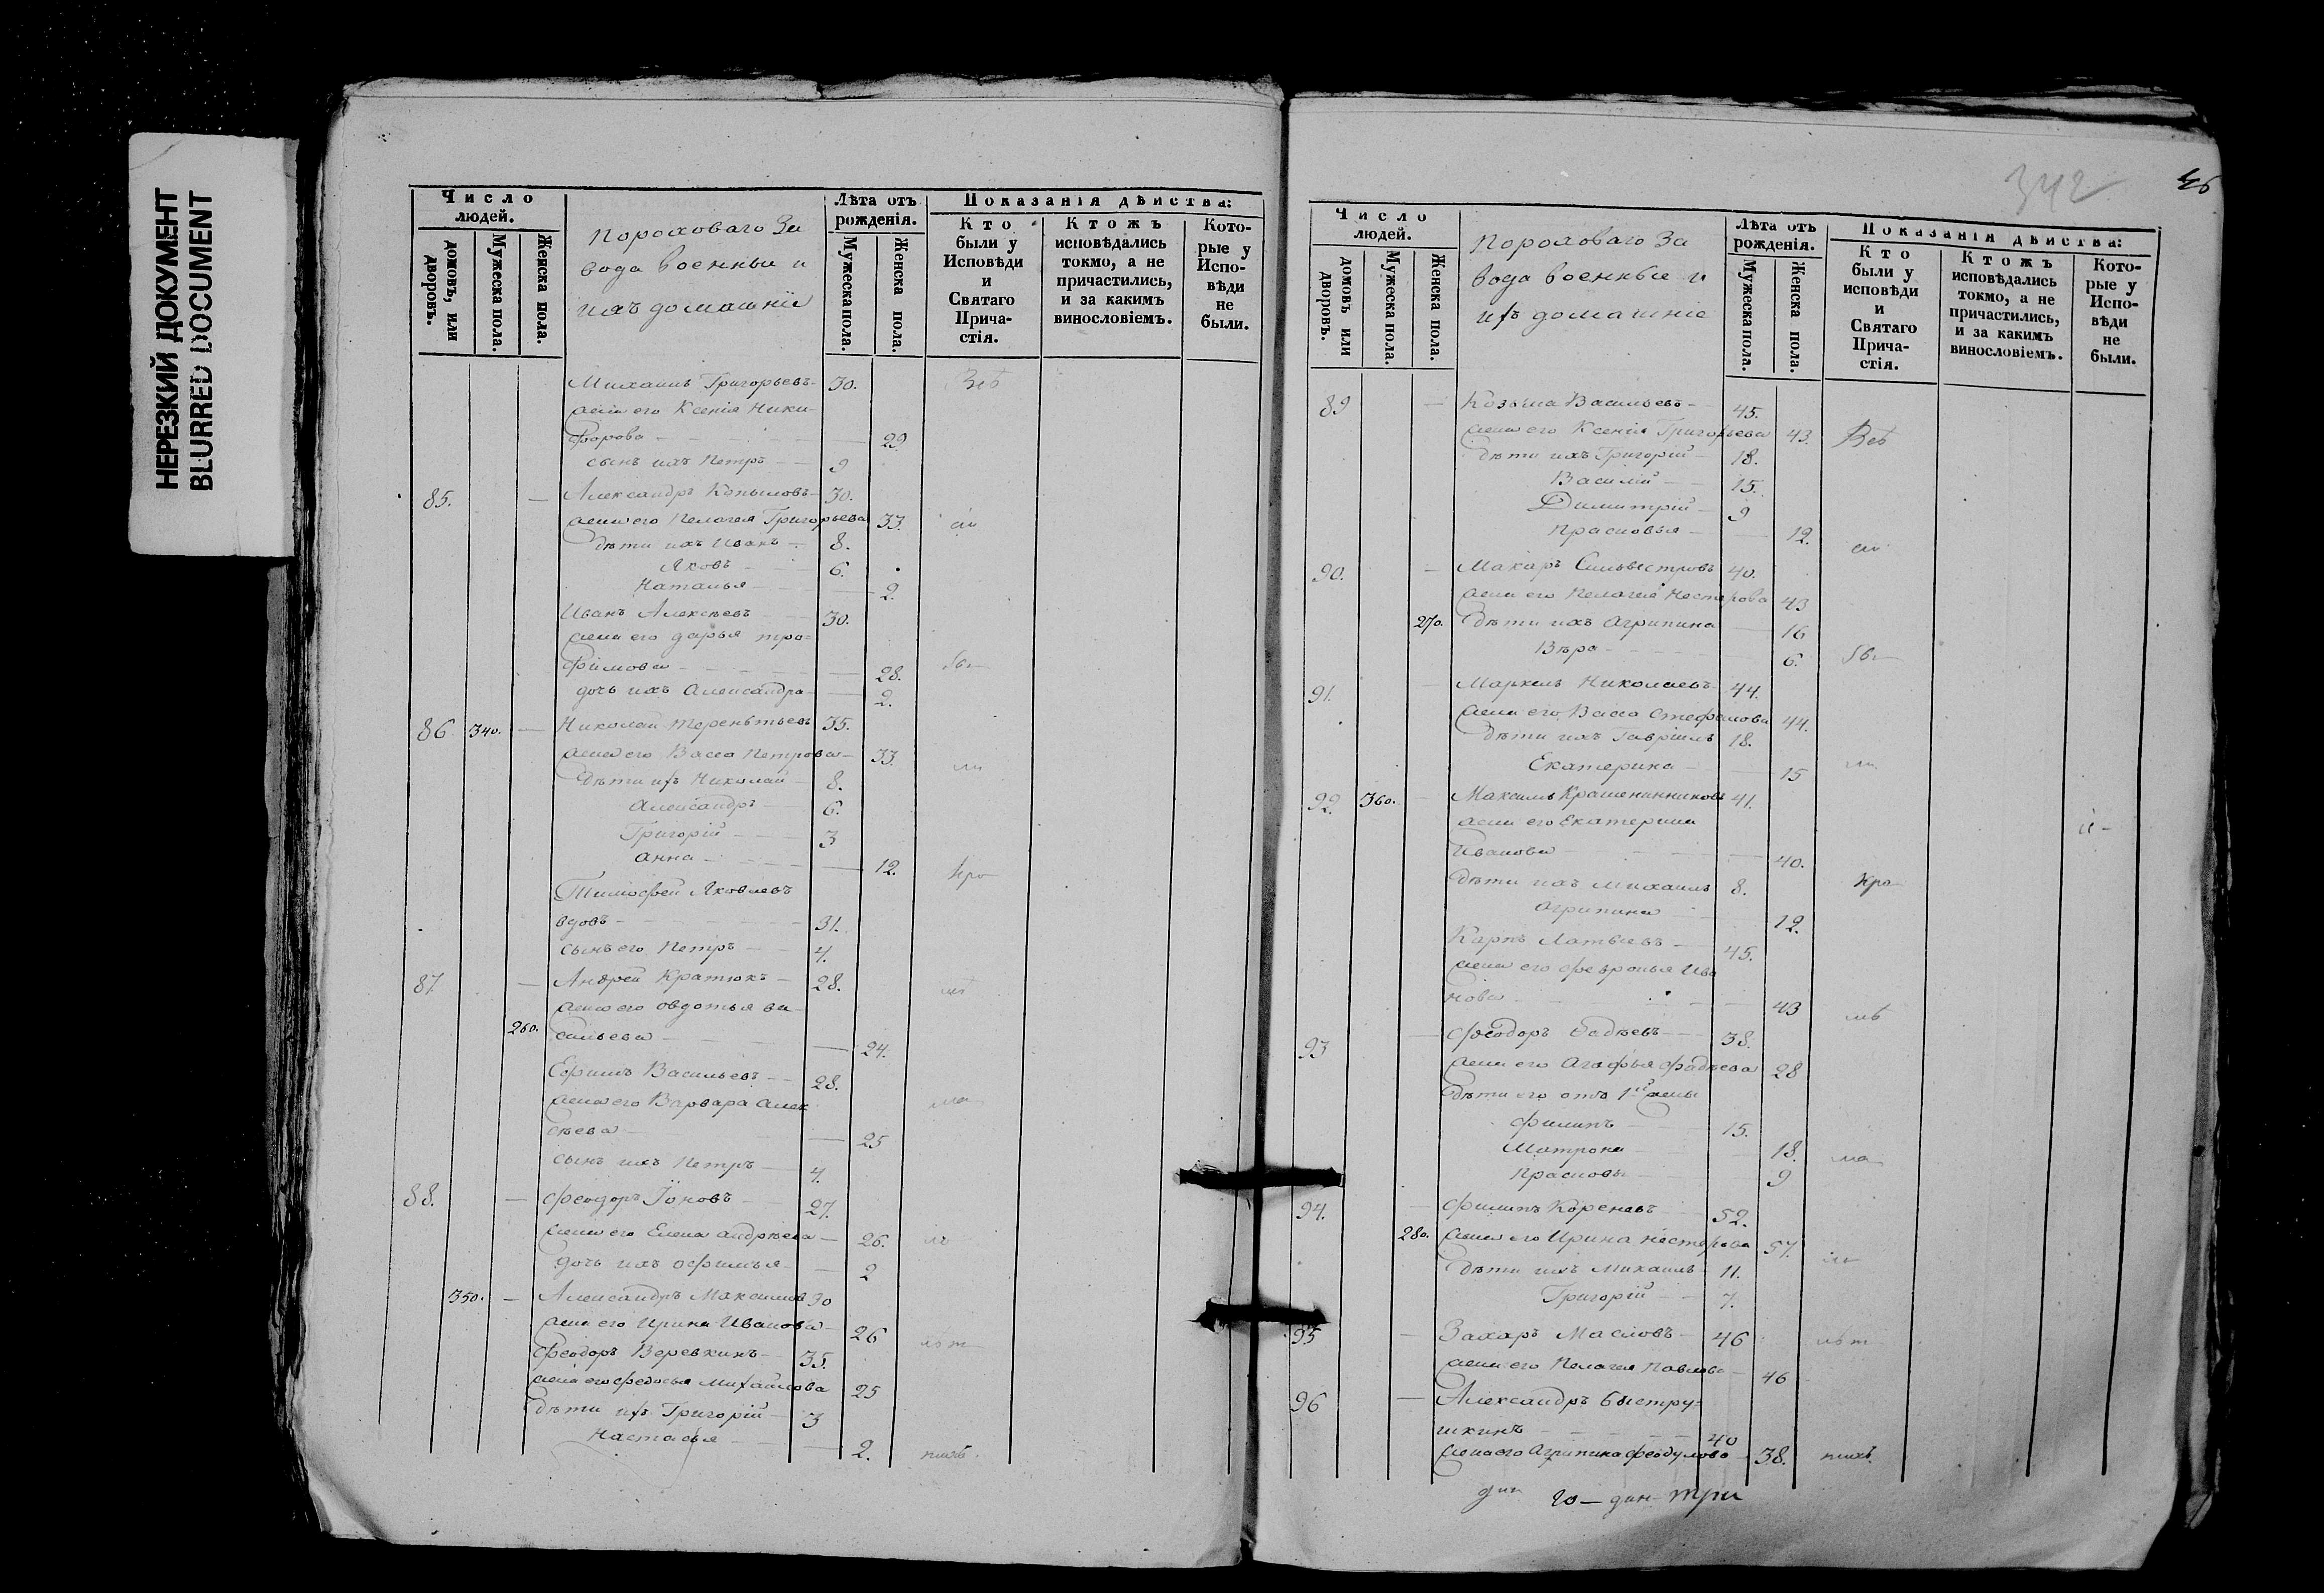 НЕРЕЗКИЙ ДОКУМЕНТ
BLURRED DOCUMENT
Число людей.
домовъ, или дворовъ.
Мужеска пола.
Женска пола.
Пороховаго За
вода военные и
ихъ домашніе
Лѣта отъ рожденія.
Мужеска пола.
Женска пола.
Показанія дѣйства:
Кто были у Исповѣди и Святаго Прича-стія.
Ктожъ исповѣдались токмо, а не причастились, и за какимъ винословіемъ.
Кото-рые у Испо-вѣди не были.
Михаилъ Григорьевъ 30. Всѣ
жена его Ксенія Ники-
форова 29
сынъ ихъ Петръ 9
85. Александръ Копыловъ 30.
жена его Пелагея Григорьева 33. сіи
дѣти ихъ Иванъ 8.
Яковъ 6.
Наталья 2.
Иванъ Алексѣевъ 30.
жена его Дарья Тро=
фимова 28.
дочь ихъ Александра 2.
86 340. Николай Терентьевъ 35.
жена его Васса Петрова 33.
дѣти ихъ Николай 8.
Александръ 6.
Григорій 3
Анна 12.
Тимофей Яковлевъ
вдовъ 31.
сынъ его Петръ 4.
87. Андрей Кратюкъ 28.
жена его Овдотья Ва-
260. сильева 24.
Ефимъ Васильевъ 28.
жена его Варвара Алек
сѣева 25
сынъ ихъ Петръ 4.
88. Феодоръ Іоновъ 27.
жена его Елена Андрѣева 26.
дочь ихъ Офимья 2
350. Александръ Максимовъ 30
жена его Ирина Иванова 26
Феодоръ Веревкинъ 35.
жена его Федосья Михайлова 25
дѣти ихъ Григорій 3
Настасья 2.
342
Число людей.
домовъ или дворовъ.
Мужеска пола.
Женска пола.
Пороховаго За
вода военные и
ихъ домашніе
Лѣта отъ рожденія.
Мужеска пола.
Женска пола.
Показанія дѣйства:
Кто были у исповѣди и Святаго Прича-стія.
Ктожъ исповѣдались токмо, а не причастились, и за какимъ винословіемъ.
Кото-рые у Испо-вѣди не были.
89 Козьма Васильевъ 45.
жена его Ксенія Григорьева 43. Всѣ
дѣти ихъ Григорій 18.
Василій 15.
Димитрій 9
Прасковья 12.
сіи
90. Макаръ Сильвестровъ 40.
жена его Пелагея Нестерова 43
270. дѣти ихъ Агрипина 16
Вѣра 6.
91. Маркелъ Николаевъ 44.
жена его Васса Стефанова 44.
дѣти ихъ Гавріилъ 18.
Екатерина 15
92. 360. Максимъ Крашенинниковъ 41.
жена его Екатерина
Иванова 40.
дѣти ихъ Михаилъ 8.
Агрипина 12.
Карпъ Матвѣевъ 45.
жена его Февронья Ива
нова 43
93 Феодоръ Фадѣевъ 38.
жена его Агафья Фадѣева 28
дѣти его отъ 1й жены
Филипъ 15.
Матрона 18.
Прасковья 9
94. Филипъ Кореневъ 52.
280. жена его Ирина Нестерова 57.
дѣти ихъ Михаилъ 11.
Григорій 7.
95 Захаръ Масловъ 46
жена его Пелагея Павлова 46
96 Александръ Быстру=
шкинъ 40
жена его Агрипина Феодулова 38.